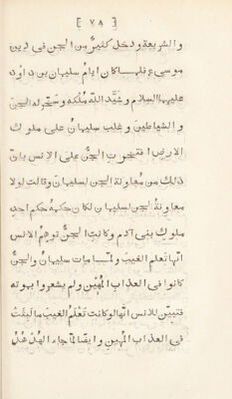 [ ٧٨ ]
والشريعة ودخل كثيرٌ من الجن فى دين
موسىء فلمّا كان ايامُ سليمان بن داود
عليهما السلام وشيّد اللّه مُلكه وسخّر له الجنَّ
والشياطين وغلب سليمانُ على ملوك
الارض افتخرت الجنُّ على الانس بانّ
ذلك من معاونة الجن لسليمان وقالت لولا
معاونة الجن لسليمان لكان حكمهُ حكم احد
ملوك بنى آدم وكانت الجنُّ توهم الانس
انها تعلم الغيب ولمّا مات سليمانُ والجنُّ
كانوا فى العذاب المُهين ولم يشعروا بموته
فتبيّن للانس انها لو كانت تَعْلَمُ الغيبَ ما لبثت
فى العذاب المهين وايضًا لمّا جاء الهُدْهُدُ